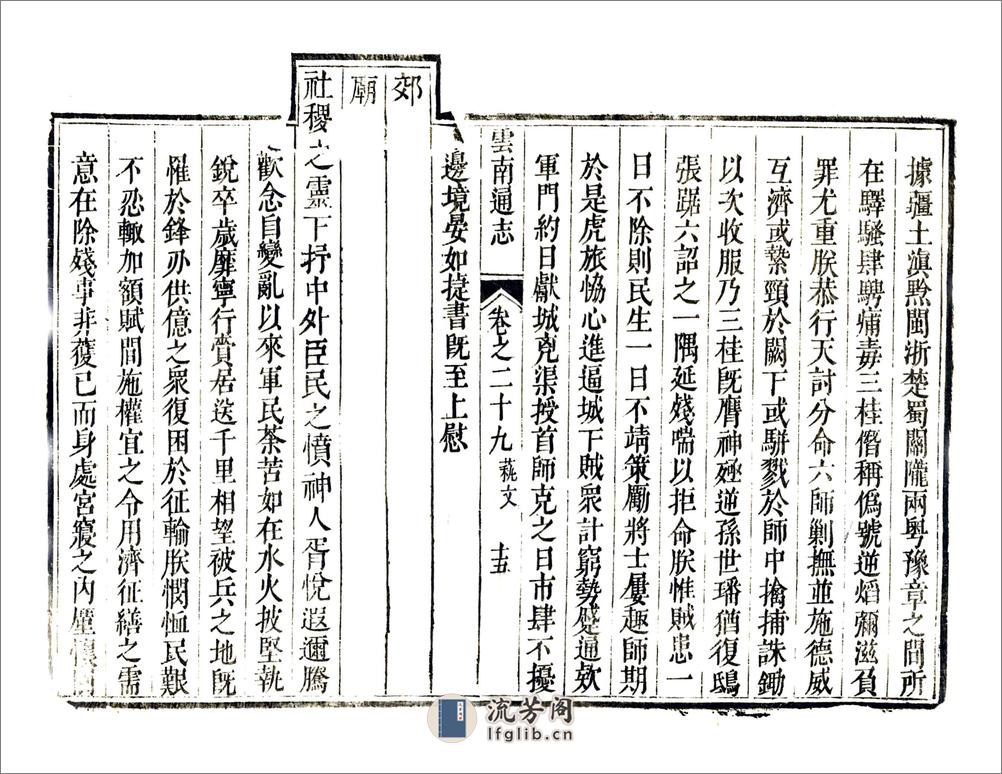 據疆土滇黔閩浙楚蜀關隴兩粵豫章之間所
在驛騷肆騁痡毒三桂僭稱僞號逆焰彌滋負
罪尤重朕恭行天討分命六師剿撫並施德威
互濟或縶頸於闕下或駢戮於師中擒捕誅鋤
以次收服乃三桂旣膺神殛逆孫世璠猶復鴟
張踞六詔之一隅延殘喘以拒命朕惟賊患一
日不除則民生一日不靖策勵將士屢趣師期
於是虎旅恊心進逼城下賊衆計窮勢蹙通欵
軍門約日獻城兇渠授首師克之日市肆不擾
雲南通志 卷之二十九 藝文 十五
邊境晏如捷書旣至上慰
郊
廟
社稷之靈下抒中外臣民之憤神人胥悅遐邇騰
歡念自變亂以來軍民荼苦如在水火披堅執
銳卒歲靡寧行賫居送千里相望被兵之地旣
罹於鋒刃供億之衆復困於征輸朕憫恤民艱
不忍輙加額賦間施權宜之令用濟征繕之需
意在除殘事非獲已而身處宮寢之內廑懷
流芳阁
lfglib.cn